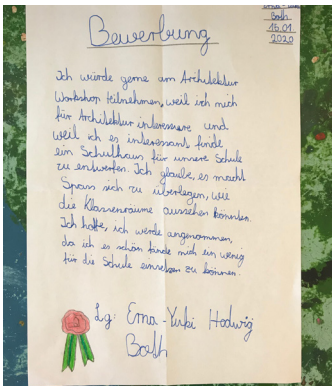 Erna-Yuki
Boeth
15.01
2020
Bewerbung
Ich würde gerne am Architektur
Workshop teilnehmen, weil ich mich
für Architektur interessiere und
weil ich es interessant finde
ein Schulhaus für unsere Schule
zu entwerfen. Ich glaube, es macht
Spass sich zu überlegen, wie
die Klassenräume aussehen könnten.
Ich hoffe, ich werde angenommen,
da ich es schön fände mich ein wenig
für die Schule einsetzen zu können.
Lg: Erna-Yuki Hedwig
Boeth